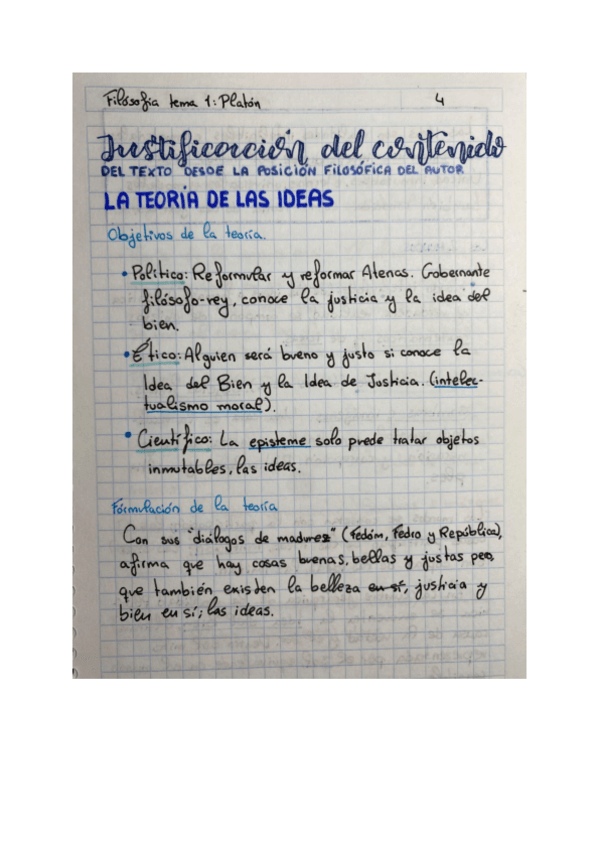 Filósofia tema 1: Platón 4
Justificación del contenido
DEL TEXTO DESDE LA POSICIÓN FILOSÓFICA DEL AUTOR
LA TEORÍA DE LAS IDEAS
Objetivos de la teoría.
• Político: Reformular y reformar Atenas. Gobernante
filósofo-rey, conoce la justicia y la idea del
bien.
• Ético: Alguien será bueno y justo si conoce la
Idea del Bien y la Idea de Justicia. (intelec-
tualismo moral).
• Científico: La episteme solo puede tratar objetos
inmutables, las ideas.
Fórmulación de la teoría
Con sus "diálogos de madurez" (Fedóm, Fedro y República),
afirma que hay cosas buenas, bellas y justas pero
que también existen la belleza en sí, justicia y
bien en sí; las ideas.